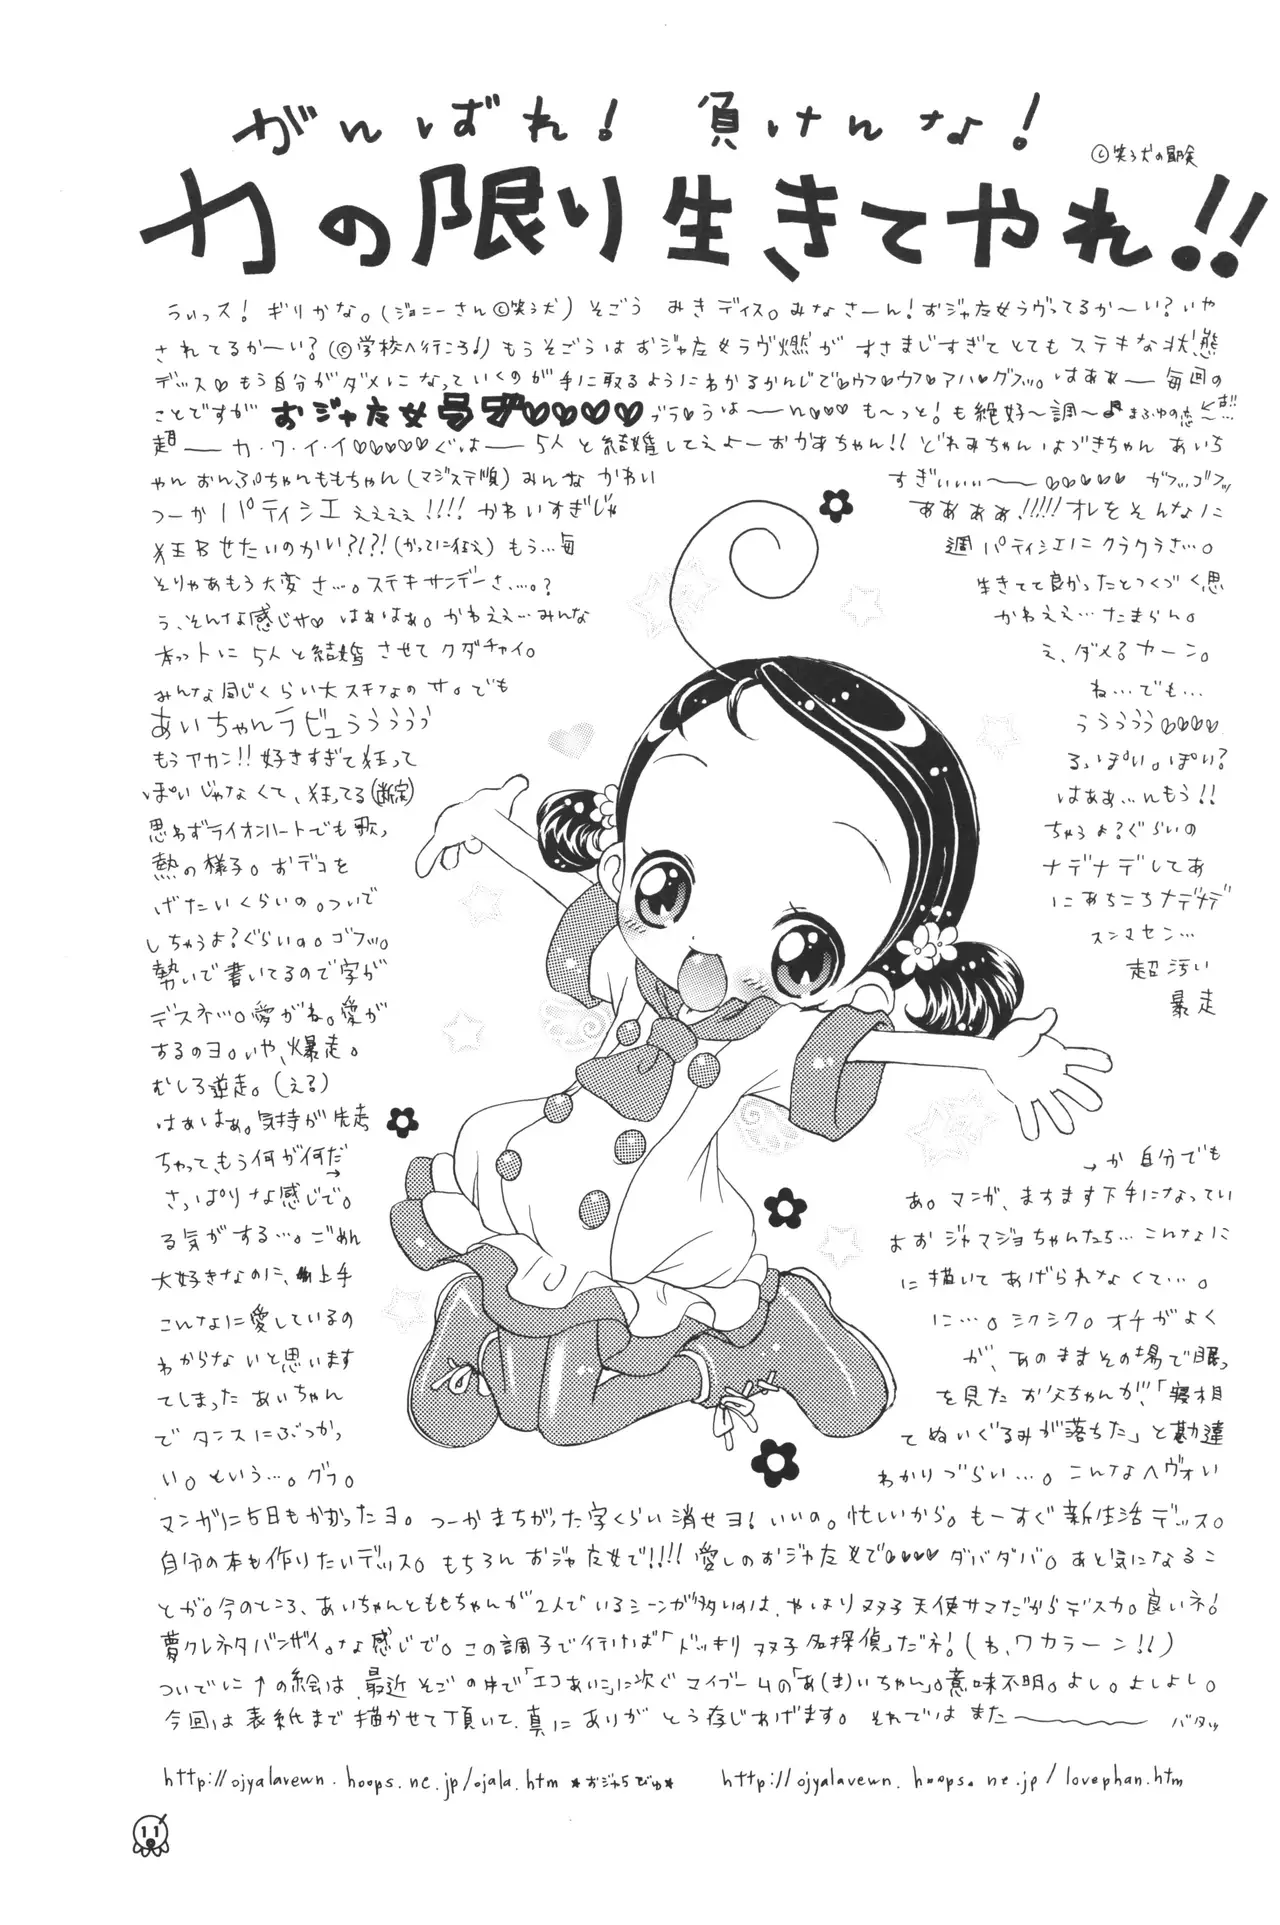 がんばれ! 負けんな!
©笑う犬の冒険
力の限り生きてやれ!!
うぃっス! ギリかな。(ジョニーさん©笑う犬) そごう みきディス。みなさーん! おジャ女ラヴってるか〜い? いや
されてるか〜い? (©学校へ行こう!) もうそごうはおジャ女ラヴ燃がすさまじすぎてとてもステキな状態
デッス♡もう自分がダメになっていくのが手に取るようにわかるかんじで♡ウフ♡ウフ♡アハ♡グフッ。はぁぁー毎回の
ことですが おジャ女ラブ♡♡♡♡ ブラ♡うはーーん♡♡♡ も〜っと! も絶好〜調〜♪まふゆの恋
超ーカ・ワ・イ・イ♡♡♡♡♡ぐはー 5人と結婚してえよーおかあちゃん!! どれみちゃんはづきちゃん あいち
ゃんおんぷちゃんももちゃん(マジステ順)みんなかわい すぎぃぃぃ〜♡♡♡♡♡ ガフッゴフッ
つーかパティシエぇぇぇぇ!!!! かわいすぎじゃ ああああ!!!!! オレをそんなに
狂わせたいのかい?!?!(かってに狂え) もう…毎 週パティシエにクラクラさ…。
そりゃあもう大変さ…。ステキサンデーさ…。? 生きてて良かったとつくづく思
う、そんな感じサ♡ はぁはぁ。かわええ…みんな かわええ…たまらん。
ホットに5人と結婚させてクダチャイ。 え、ダメ? カーン。
みんな同じくらい大スキなのサ。でも ね…でも…
あいちゃんラビュうううううう うううううう♡♡♡♡
もうアカン!! 好きすぎて狂って る、ぽい。ぽい?
ぽいじゃなくて、狂ってる(断定) はぁぁ…んもう!!
思わずライオンハートでも歌っ ちゃうよ? ぐらいの
熱の様子。おデコを ナデナデしてあ
げたいくらいの。ついで にあちこちナデナデ
しちゃうよ? ぐらいの。ゴフッ。 スンマセン…
勢いで書いてるので字が 超汚い
デスネッ。愛がね。愛が 暴走
するのヨ。いや、爆走。
むしろ逆走。(える)
はぁはぁ。気持が先走
ちゃって、もう何が何だ→ →か自分でも
さっぱりな感じで。 あ。マンガ、ますます下手になってい
る気がする…。ごめん よおジャマジョちゃんたち…こんなに
大好きなのに、上手 に描いてあげられなくて…。
こんなに愛しているの に…。シクシク。オチがよく
わからないと思います が、あのままその場で眠っ
てしまったあいちゃん を見たお父ちゃんが「寝相
でタンスにぶつかっ てぬいぐるみが落ちた」と勘違
い。という…。グフ。 わかりづらい…。こんなヘヴォい
マンガに5日もかかったヨ。つーかまちがった字くらい消せヨ! いいの。忙しいから。もーすぐ新生活デッス。
自分の本も作りたいデッス。もちろんおジャ女で!!!! 愛しのおジャ女で♡♡♡♡ ダバダバ。あと気になるこ
とが。今のところ、あいちゃんとももちゃんが2人でいるシーンが多いのは、やはり双子天使サマだからデスカ。良いネ!
夢クレネタバンザイ。な感じで。この調子で行けば「ドッキリ双子名探偵」だネ! (わ、ワカラーン!!)
ついでに↑の絵は最近そごの中で「エコあいこ」に次ぐマイブームの「あ(ま)いちゃん」。意味不明。よし。よしよし。
今回は表紙まで描かせて頂いて、真にありがとう存じあげます。それではまたーーー バタッ
http://ojyalavewn.hoops.ne.jp/ojala.htm ★おジャらびゅ★ http://ojyalavewn.hoops.ne.jp/lovephan.htm
11